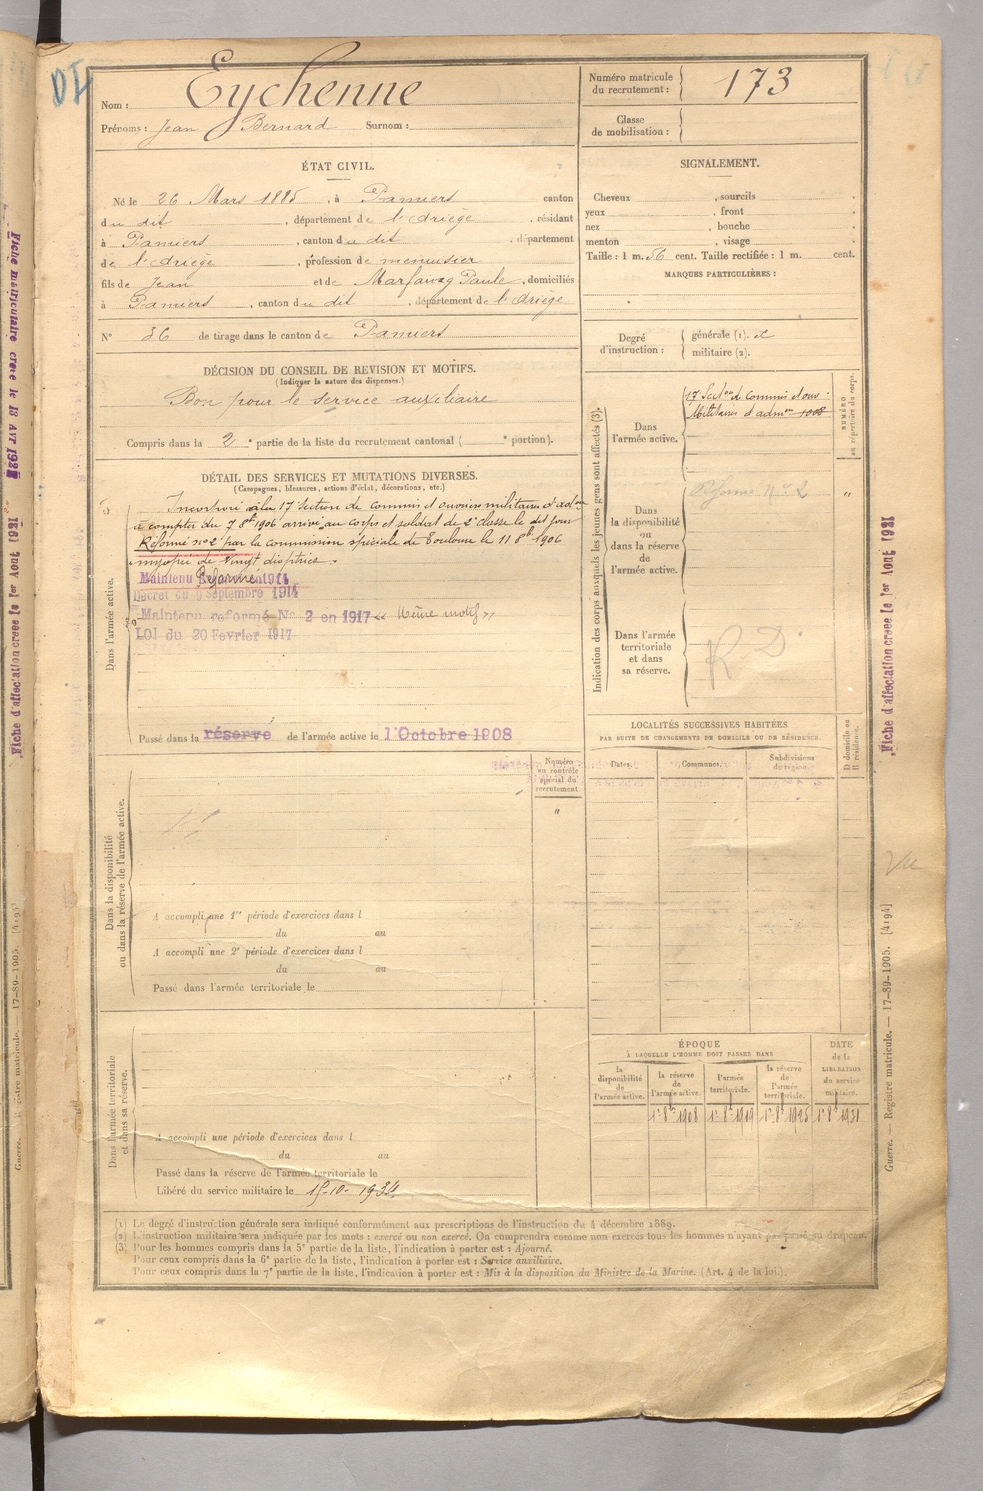 Nom : Eychenne
Prénoms : Jean Bernard Surnom :
Numéro matricule du recrutement : 173
Classe de mobilisation :
ÉTAT CIVIL.
Né le 26 Mars 1885, à Pamiers canton
du dit, département de l'Ariège, résidant
à Pamiers, canton du dit, département
de l'Ariège, profession de menuisier
fils de Jean et de Paule, domiciliés
à Pamiers, canton du dit, département de l'Ariège
N° 36 de tirage dans le canton de Pamiers
SIGNALEMENT.
Cheveux , sourcils
yeux , front
nez , bouche
menton , visage
Taille : 1 m. 56 cent. Taille rectifiée : 1 m. cent.
MARQUES PARTICULIÈRES :
Degré d'instruction : générale (1).
militaire (2).
DÉCISION DU CONSEIL DE REVISION ET MOTIFS.
(Indiquer la nature des dispenses.)
Bon pour le service auxiliaire
Compris dans la 2e partie de la liste du recrutement cantonal ( e portion).
DÉTAIL DES SERVICES ET MUTATIONS DIVERSES.
(Campagnes, blessures, actions d'éclat, décorations, etc.)
Dans l'armée active.
Incorporé à la 17 Section de commis et ouvriers militaires d'adon
à compter du 7 8bre 1906 arrivé au corps et soldat de 2e classe le dit jour
Réformé n°2 par la commission spéciale de Toulouse le 11 8b 1906
myopie de vingt dioptries.
Maintenu Réformé 1914
Décret du 9 Septembre 1914
Maintenu reformé N° 2 en 1917 « Même motif »
LOI du 20 Fevrier 1917
Passé dans la réserve de l'armée active le 1 Octobre 1908
Indication des corps auxquels les jeunes gens sont affectés (3).
NUMÉRO au répertoire du corps.
Dans l'armée active.
17 Section de Commis et ouv.
Militaires d'admon 1008
Dans la disponibilité ou dans la réserve de l'armée active.
Réforme N° 2
"
Dans l'armée territoriale et dans sa réserve.
R. D.
LOCALITÉS SUCCESSIVES HABITÉES
PAR SUITE DE CHANGEMENTS DE DOMICILE OU DE RÉSIDENCE.
D domicile ou R résidence.
Dates. Communes. Subdivisions de région.
Dans la disponibilité ou dans la réserve de l'armée active.
Numéro au contrôle spécial du recrutement.
"
A accompli une 1re période d'exercices dans l
du au
A accompli une 2e période d'exercices dans l
du au
Passé dans l'armée territoriale le
Dans l'armée territoriale et dans sa réserve.
A accompli une période d'exercices dans l
du au
Passé dans la réserve de l'armée territoriale le
Libéré du service militaire le 15-10-1934
ÉPOQUE
À LAQUELLE L'HOMME DOIT PASSER DANS
la disponibilité de l'armée active.
la réserve de l'armée active.
l'armée territoriale.
la réserve de l'armée territoriale.
DATE de la LIBÉRATION du service militaire.
1er 8b 1908 1er 8b 1919 1er 8b 1925 1er 8b 1931
(1) Le degré d'instruction générale sera indiqué conformément aux prescriptions de l'instruction du 4 décembre 1889.
(2) L'instruction militaire sera indiquée par les mots : exercé ou non exercé. On comprendra comme non exercés tous les hommes n'ayant pas passé au drapeau.
(3) Pour les hommes compris dans la 5e partie de la liste, l'indication à porter est : Ajourné.
Pour ceux compris dans la 6e partie de la liste, l'indication à porter est : Service auxiliaire.
Pour ceux compris dans la 7e partie de la liste, l'indication à porter est : Mis à la disposition du Ministre de la Marine. (Art. 4 de la loi.)
Fiche d'affectation creee le 1er Août 1921
Vu
Guerre. — Registre matricule. — 17-89-1905. [4194]
Fiche matriculaire creee le 13 AVR
Fiche d'affectation creee le 1er Août 1921